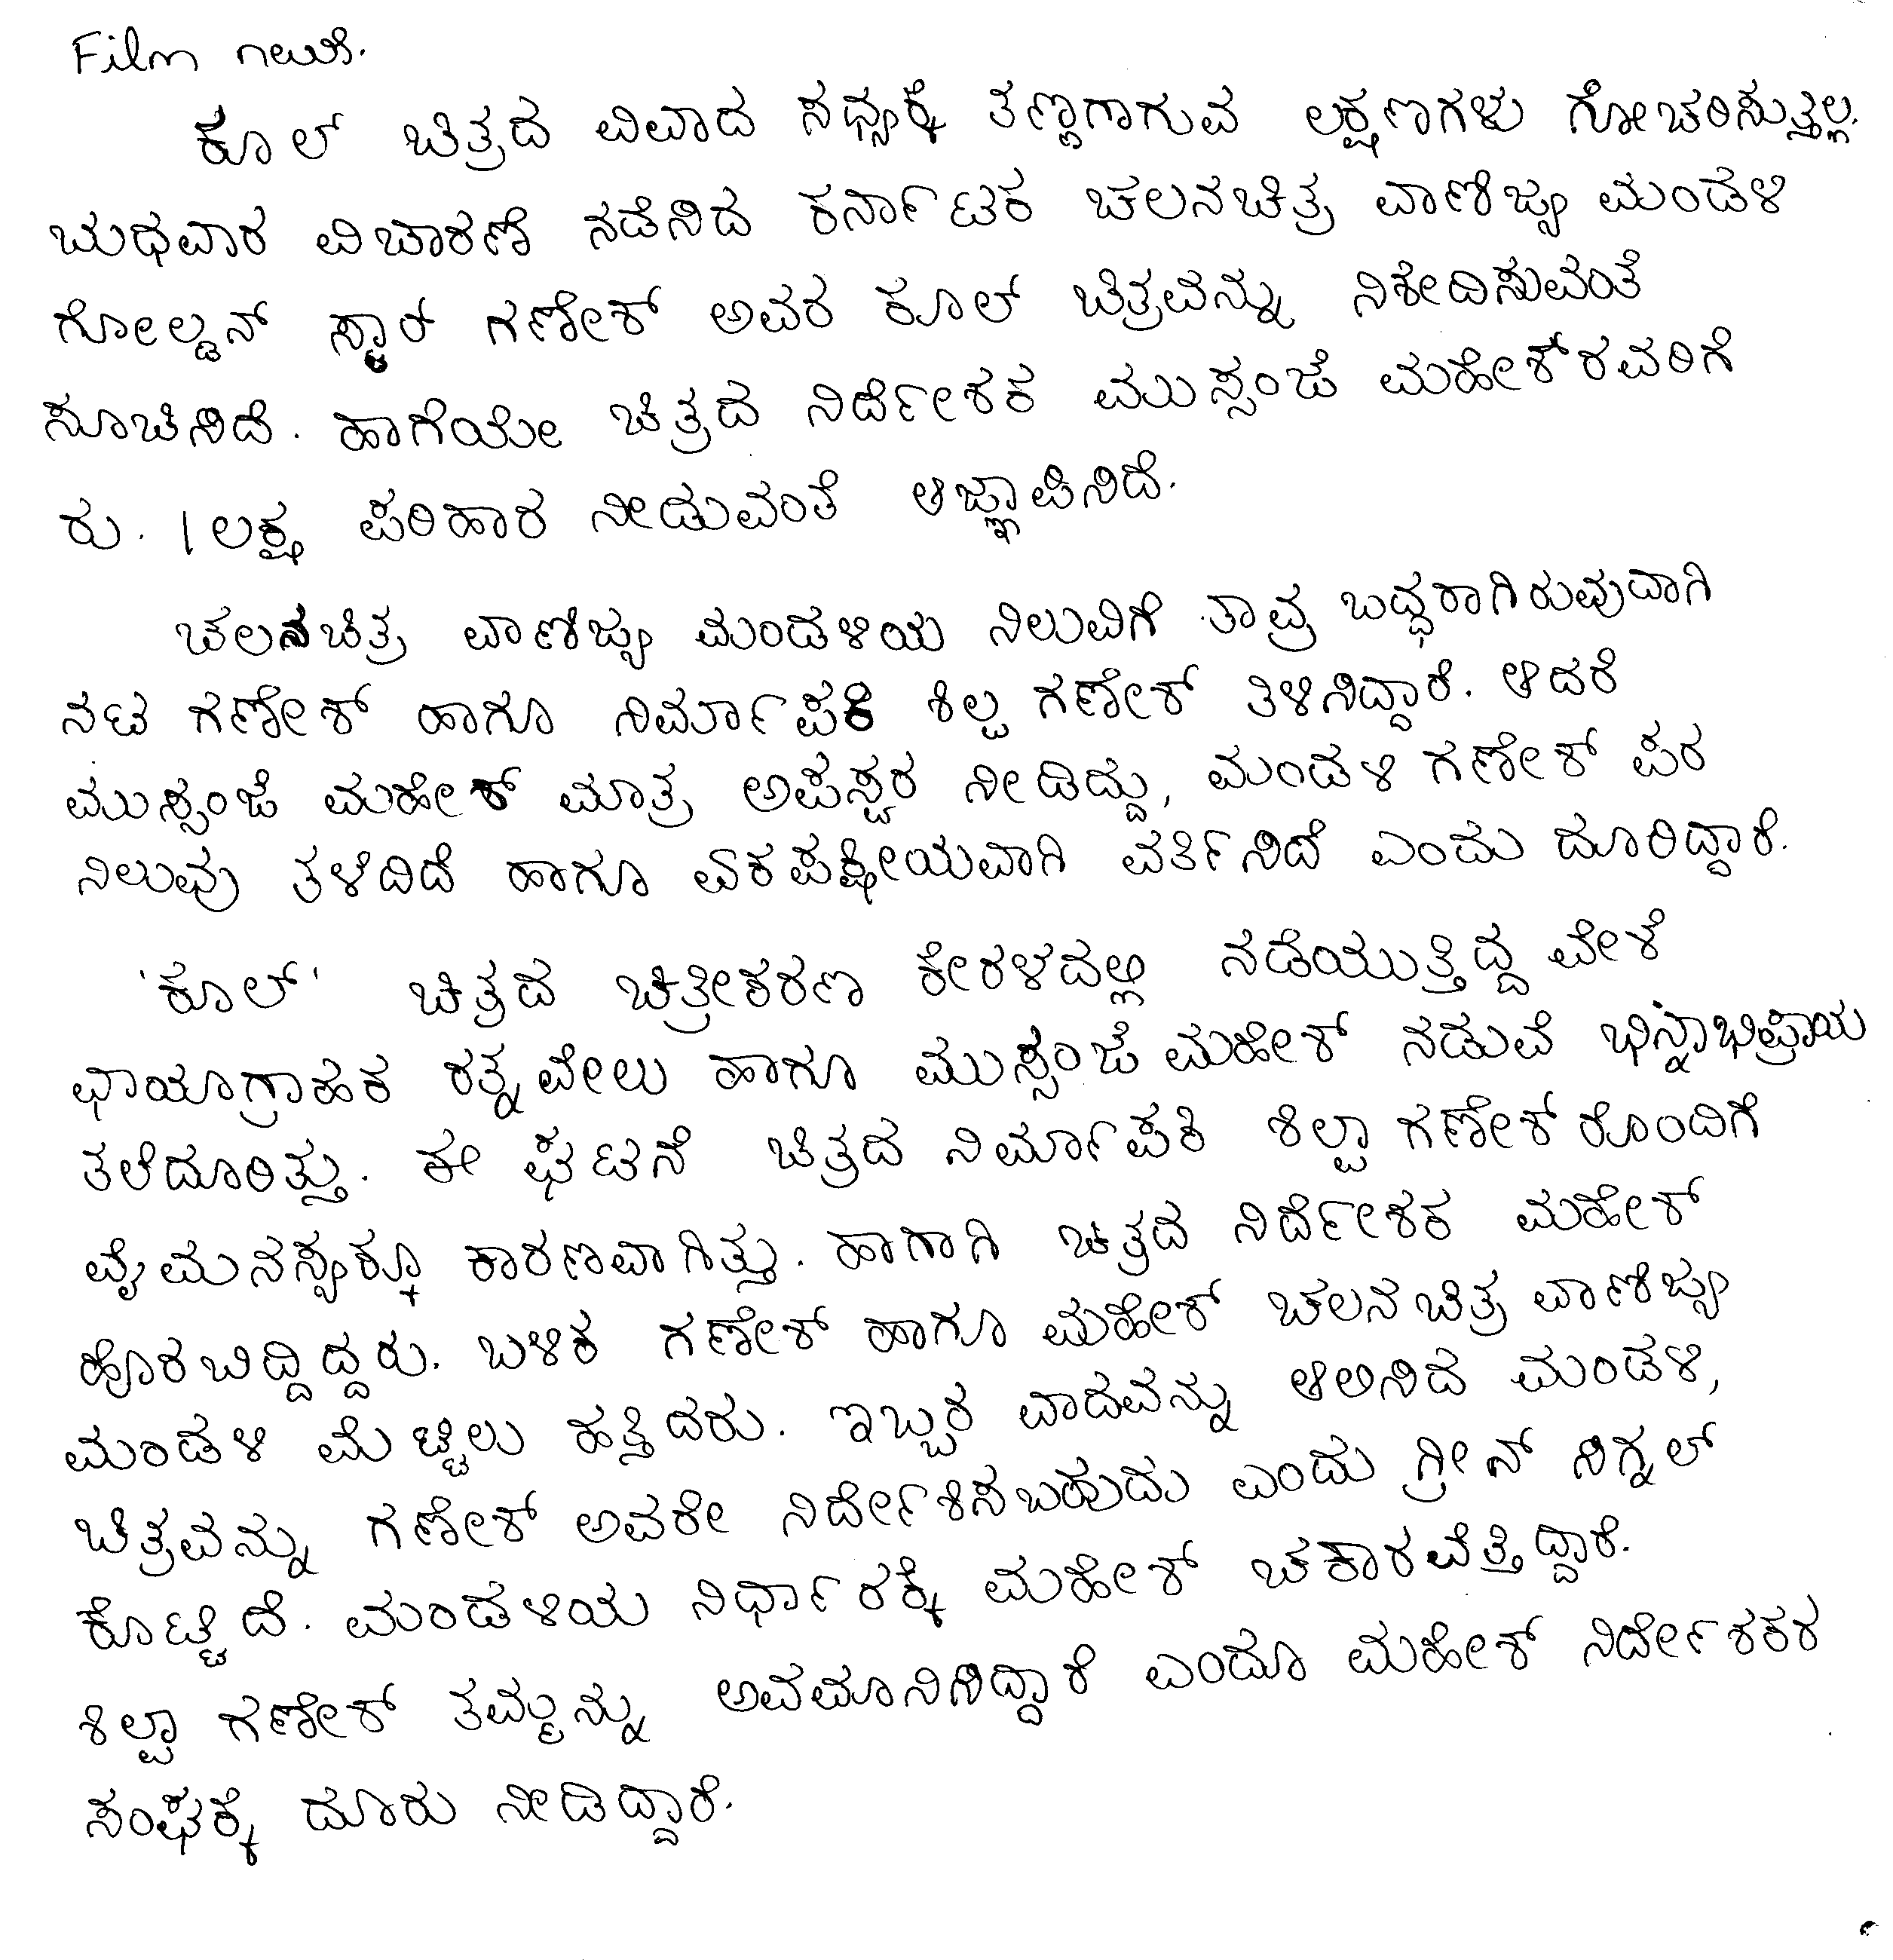 Film ಗಲಾಟೆ.
ಕೂಲ್ ಚಿತ್ರದ ವಿವಾದ ಸಧ್ಯಕ್ಕೆ ತಣ್ಣಗಾಗುವ ಲಕ್ಷಣಗಳು ಗೋಚರಿಸುತ್ತಿಲ್ಲ.
ಬುಧವಾರ ವಿಚಾರಣೆ ನಡೆಸಿದ ಕರ್ನಾಟಕ ಚಲನಚಿತ್ರ ವಾಣಿಜ್ಯ ಮಂಡಳಿ
ಗೋಲ್ಡನ್ ಸ್ಟಾರ್ ಗಣೇಶ್ ಅವರ ಕೂಲ್ ಚಿತ್ರವನ್ನು ನಿಶೇದಿಸುವಂತೆ
ಸೂಚಿಸಿದೆ. ಹಾಗೆಯೇ ಚಿತ್ರದ ನಿರ್ದೇಶಕ ಮುಸ್ಸಂಜೆ ಮಹೇಶ್‌ರವರಿಗೆ
ರು. 1 ಲಕ್ಷ ಪರಿಹಾರ ನೀಡುವಂತೆ ಆಜ್ಞಾಪಿಸಿದೆ.
ಚಲನಚಿತ್ರ ವಾಣಿಜ್ಯ ಮಂಡಳಿಯ ನಿಲುವಿಗೆ ತಾವು ಬದ್ಧರಾಗಿರುವುದಾಗಿ
ನಟ ಗಣೇಶ್ ಹಾಗೂ ನಿರ್ಮಾಪಕಿ ಶಿಲ್ಪ ಗಣೇಶ್ ತಿಳಿಸಿದ್ದಾರೆ. ಆದರೆ
ಮುಸ್ಸಂಜೆ ಮಹೇಶ್ ಮಾತ್ರ ಅಪಸ್ವರ ನೀಡಿದ್ದು, ಮಂಡಳಿ ಗಣೇಶ್ ಪರ
ನಿಲುವು ತಳೆದಿದೆ ಹಾಗೂ ಏಕಪಕ್ಷೀಯವಾಗಿ ವರ್ತಿಸಿದೆ ಎಂದು ದೂರಿದ್ದಾರೆ.
'ಕೂಲ್' ಚಿತ್ರದ ಚಿತ್ರೀಕರಣ ಕೇರಳದಲ್ಲಿ ನಡೆಯುತ್ತಿದ್ದ ವೇಳೆ
ಛಾಯಾಗ್ರಾಹಕ ರತ್ನವೇಲು ಹಾಗೂ ಮುಸ್ಸಂಜೆ ಮಹೇಶ್ ನಡುವೆ ಭಿನ್ನಾಭಿಪ್ರಾಯ
ತಲೆದೂರಿತ್ತು. ಈ ಘಟನೆ ಚಿತ್ರದ ನಿರ್ಮಾಪಕಿ ಶಿಲ್ಪಾ ಗಣೇಶ್ ರೊಂದಿಗೆ
ವೈಮನಸ್ಯಕ್ಕೂ ಕಾರಣವಾಗಿತ್ತು. ಹಾಗಾಗಿ ಚಿತ್ರದ ನಿರ್ದೇಶಕ ಮಹೇಶ್
ಹೊರಬಿದ್ದಿದ್ದರು. ಬಳಿಕ ಗಣೇಶ್ ಹಾಗೂ ಮಹೇಶ್ ಚಲನಚಿತ್ರ ವಾಣಿಜ್ಯ
ಮಂಡಳಿ ಮೆಟ್ಟಿಲು ಹತ್ತಿದರು. ಇಬ್ಬರ ವಾದವನ್ನು ಆಲಿಸಿದ ಮಂಡಳಿ,
ಚಿತ್ರವನ್ನು ಗಣೇಶ್ ಅವರೇ ನಿರ್ದೇಶಿಸಬಹುದು ಎಂದು ಗ್ರೀನ್ ಸಿಗ್ನಲ್
ಕೊಟ್ಟಿದೆ. ಮಂಡಳಿಯ ನಿರ್ಧಾರಕ್ಕೆ ಮಹೇಶ್ ಚಕಾರವೆತ್ತಿದ್ದಾರೆ.
ಶಿಲ್ಪಾ ಗಣೇಶ್ ತಮ್ಮನ್ನು ಅವಮಾನಿಸಿದ್ದಾರೆ ಎಂದೂ ಮಹೇಶ್ ನಿರ್ದೇಶಕರ
ಸಂಘಕ್ಕೆ ದೂರು ನೀಡಿದ್ದಾರೆ.